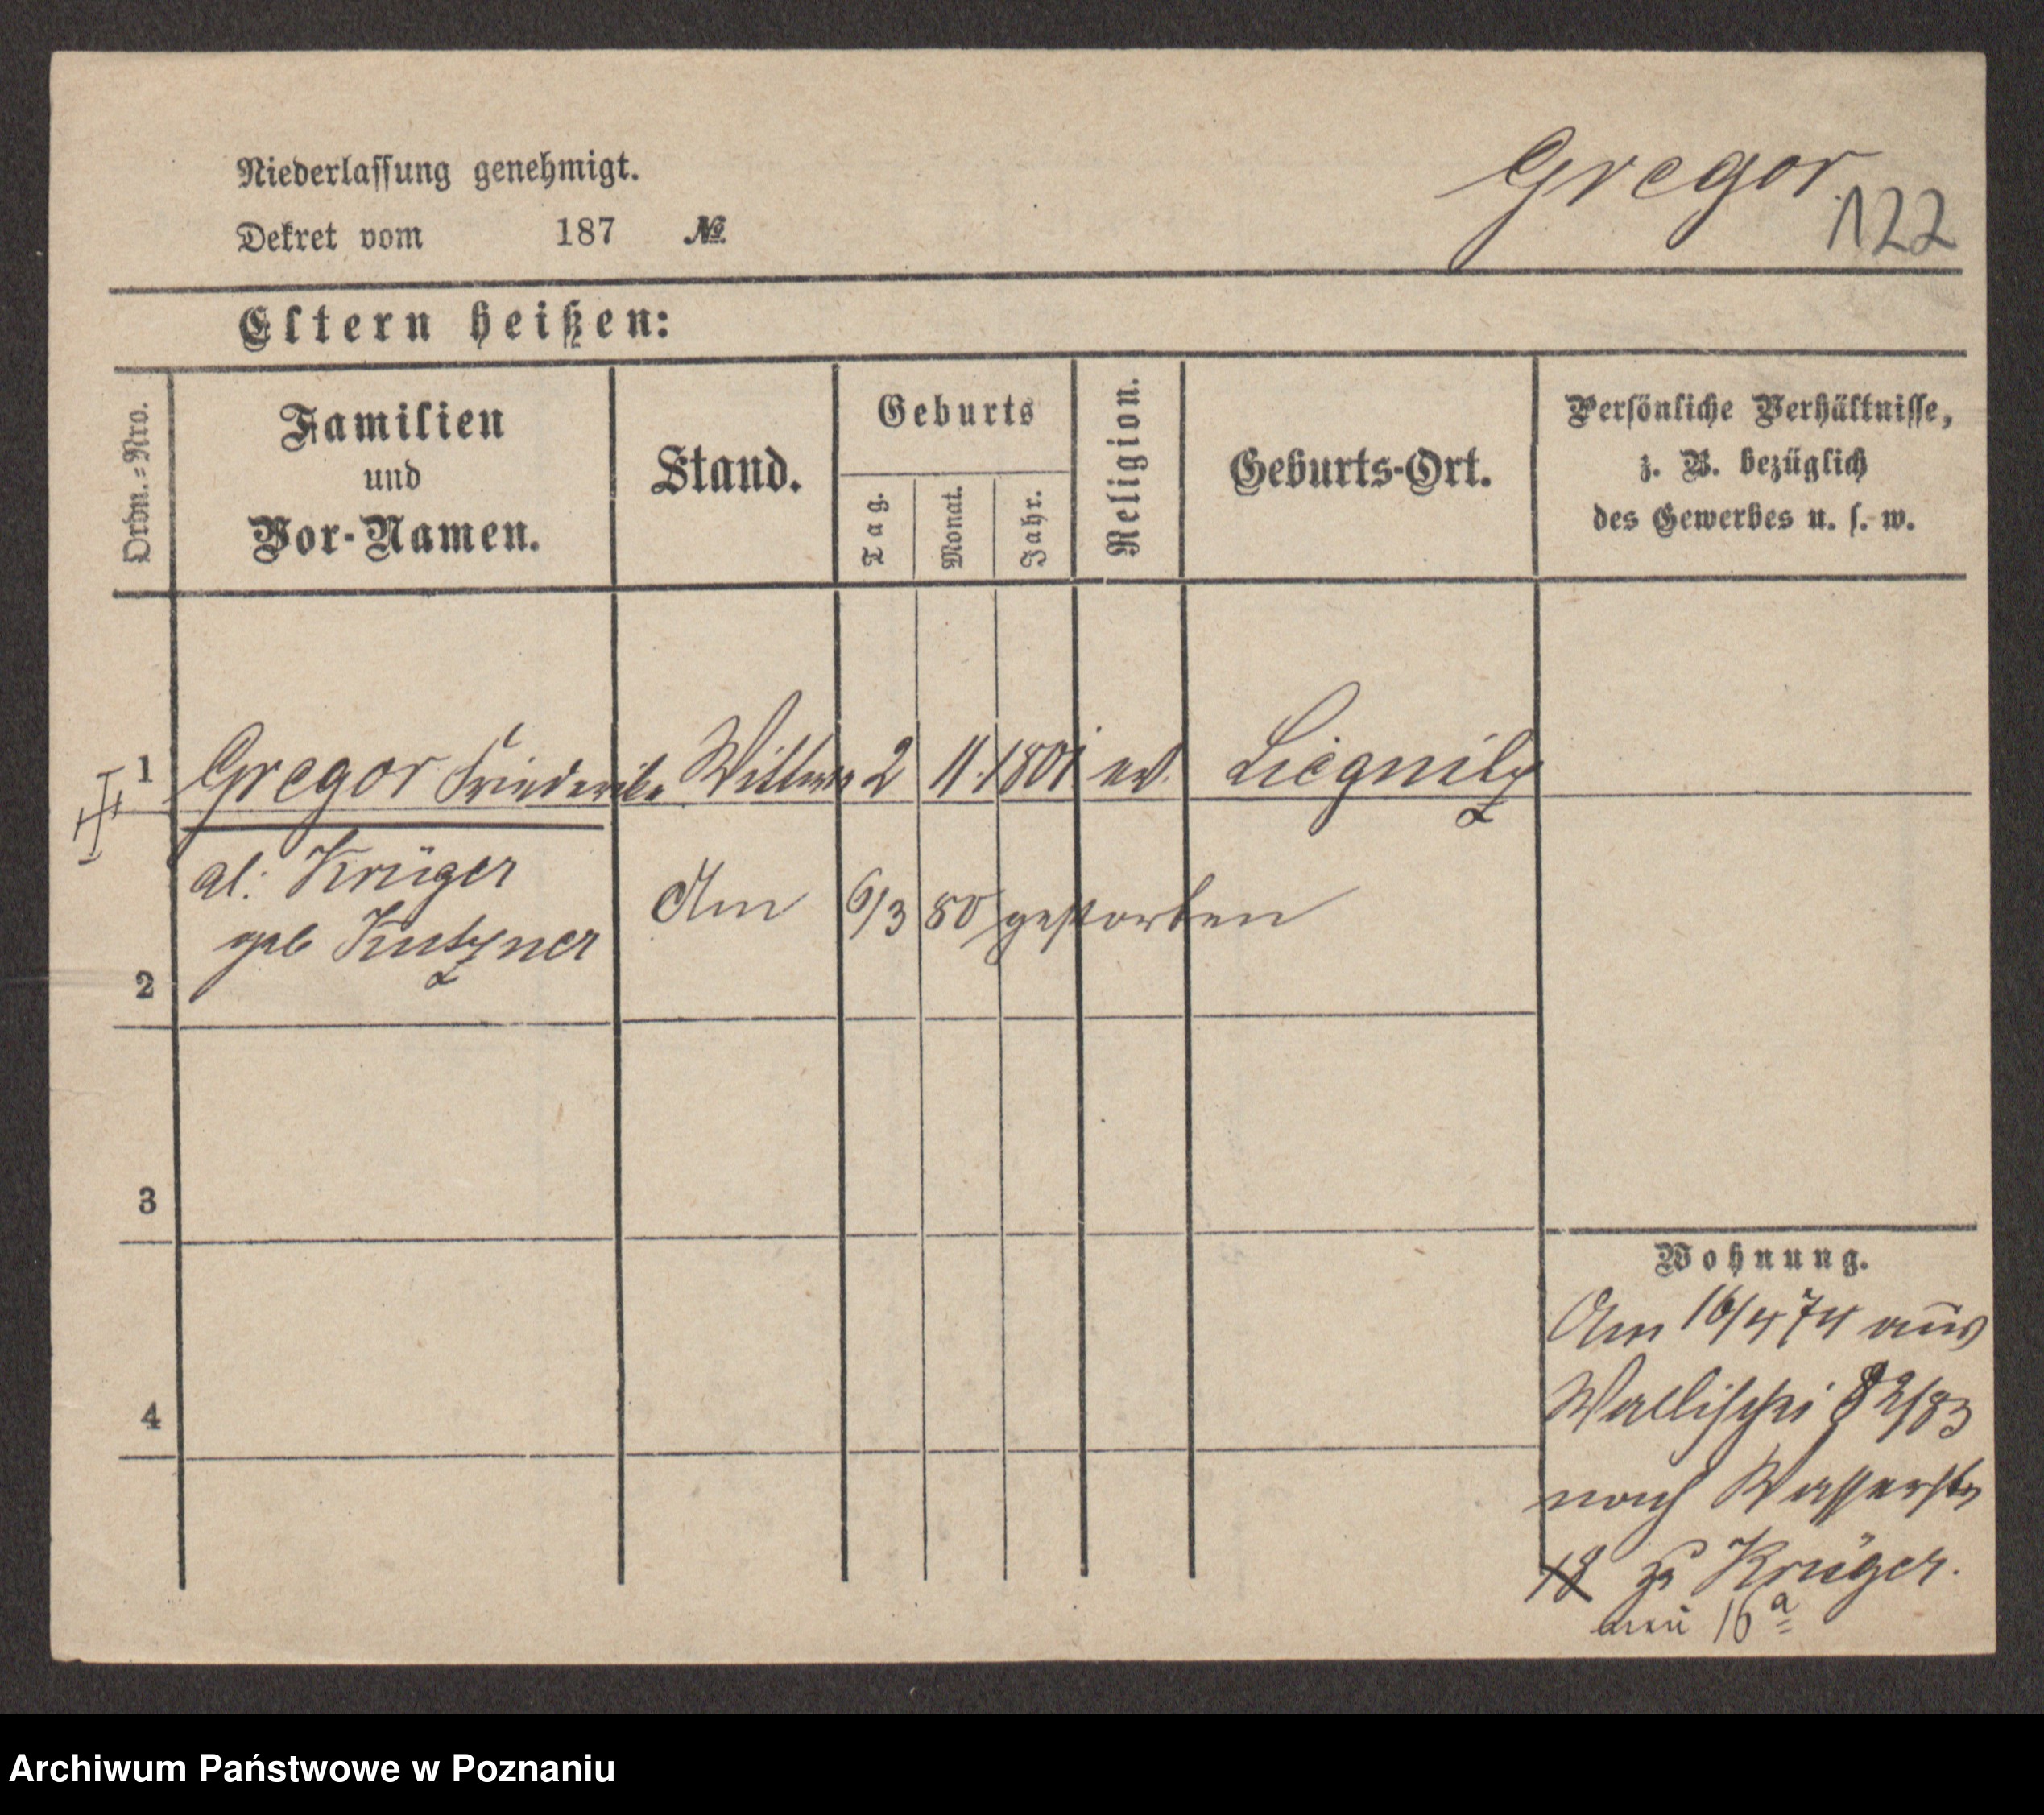 Niederlassung genehmigt.
Gregor
122
Dekret vom 187 №
Eltern heißen:
Ordn.=Nro.
Familien
und
Vor-Namen.
Stand.
Geburts
Tag.
Monat.
Jahr.
Religion.
Geburts-Ort.
Persönliche Verhältnisse,
z. B. bezüglich
des Gewerbes u. s. w.
1 Gregor Friederike Wittwe 2 11. 1801 ev. Liegnitz
al: Krüger
Am 6/3 80 gestorben
geb Kutzner
2
3
4
Wohnung.
Am 16/4 74 aus
Wallischei 82/83
nach Wasserstr
18 zu Krüger.
16 a
Archiwum Państwowe w Poznaniu